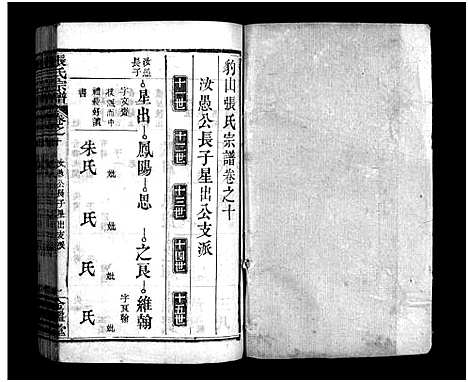 豹山張氏宗譜卷之十
汝愚公長子星出公支派
十一世 十二世 十三世 十四世 十五世
汝愚長子
星出 鳳陽 思 之良 維翰
字文齋
性溫而中
禮最好讀
書
字夏翰
妣 妣 妣 妣
朱氏 氏 氏 氏
張氏宗譜 卷之十
汝愚公長子星出支派
堂